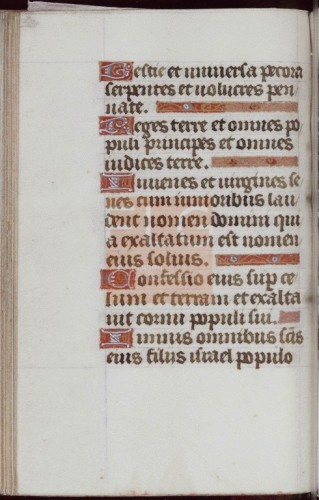 Bestie et universa pecora
serpentes et volucres pen
nate.
Reges terre et omnes po
puli principes et omnes
iudices terre.
Iuvenes et virgines se
nes cum iunioribus lau
dent nomen domini qui
a exaltatum est nomen
eius solius.
Confessio eius sup ce
lum et terram et exalta
vit cornu populi sui.
Himnus omnibus scis
eius filiis israel populo